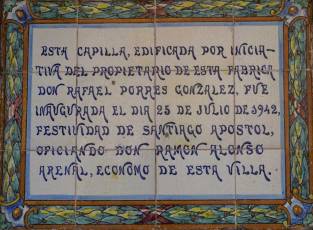 ESTA CAPILLA, EDIFICADA POR INICIA-
TIVA DEL PROPIETARIO DE ESTA FABRICA
DON RAFAEL PORRES GONZALEZ, FUE
INAUGURADA EL DIA 25 DE JULIO DE 1942,
FESTIVIDAD DE SANTIAGO APOSTOL,
OFICIANDO DON RAMON ALONSO
ARENAL, ECONOMO DE ESTA VILLA.